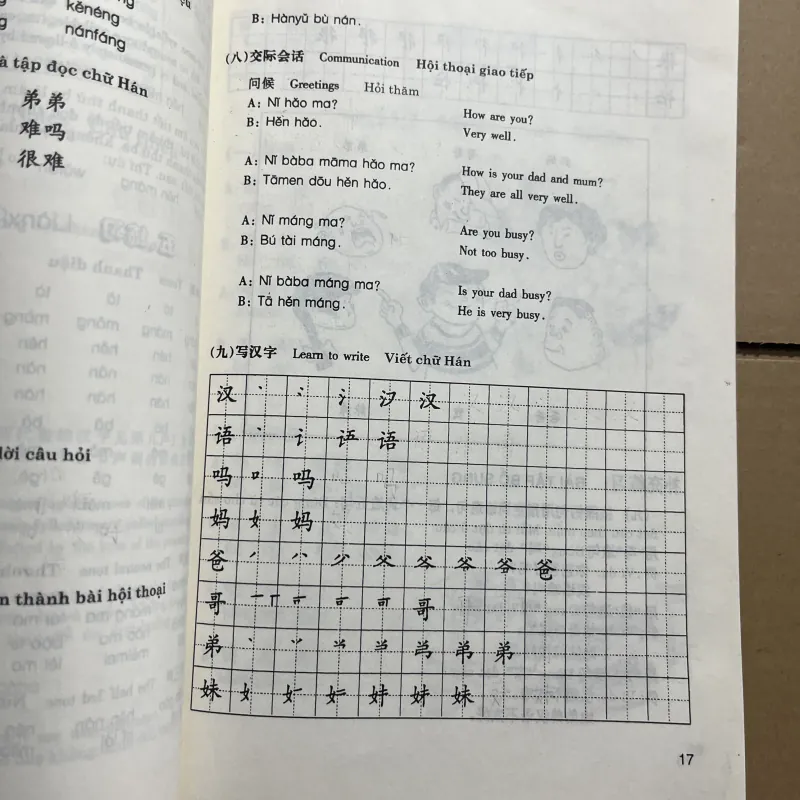 kěnéng
nánfáng
à tập đọc chữ Hán
弟弟
难吗
很难
lời câu hỏi
n thành bài hội thoại
B: Hànyǔ bù nán.
(八)交际会话 Communication Hội thoại giao tiếp
问候 Greetings Hỏi thăm
A: Nǐ hǎo ma? How are you?
B: Hěn hǎo. Very well.
A: Nǐ bàba māma hǎo ma? How is your dad and mum?
B: Tāmen dōu hěn hǎo. They are all very well.
A: Nǐ máng ma? Are you busy?
B: Bú tài máng. Not too busy.
A: Nǐ bàba máng ma? Is your dad busy?
B: Tā hěn máng. He is very busy.
(九)写汉字 Learn to write Viết chữ Hán
汉 丶 冫 氵 汉
语 丶 讠 语
吗 吗
妈 女 妈
爸 丿 八 父 爸
哥 一 哥
弟 丶 弟 弟
妹 女 妹 妹
17